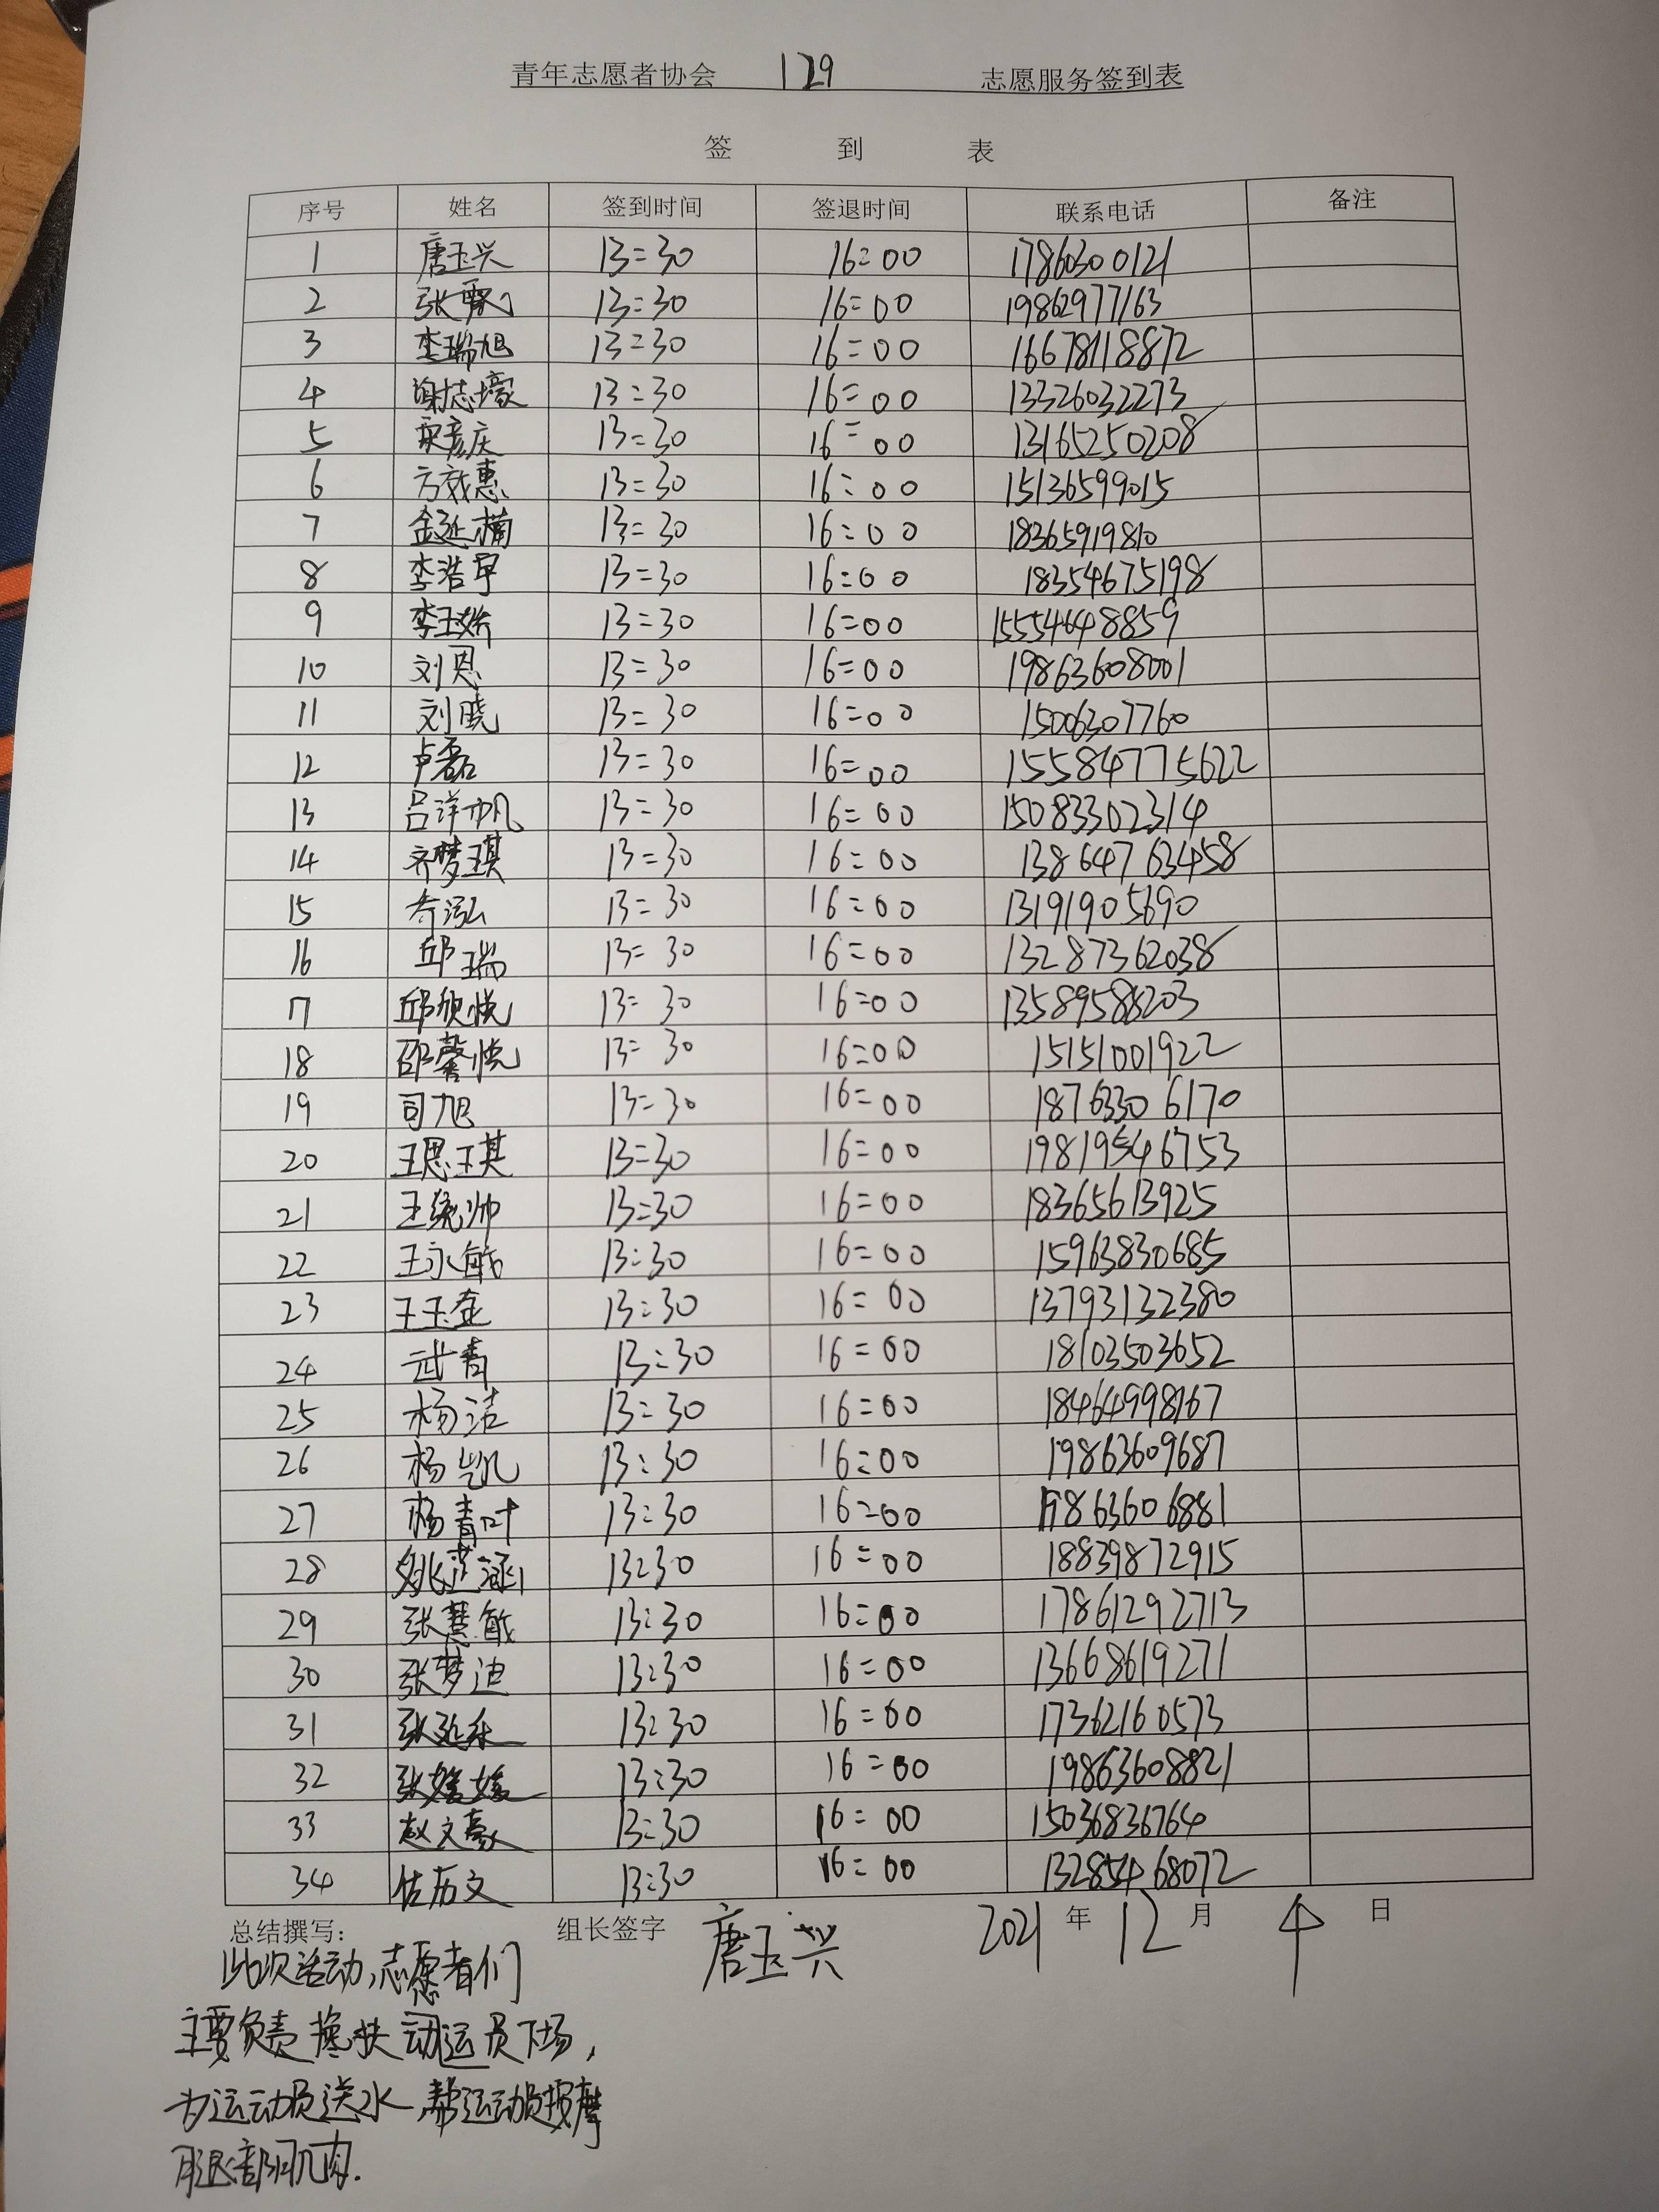 青年志愿者协会 129 志愿服务签到表
签 到 表
序号 姓名 签到时间 签退时间 联系电话 备注
1 唐玉兴 13:30 16:00 17860300121
2 张 13:30 16:00 19862977163
3 李瑞旭 13:30 16:00 16678118872
4 谢志壕 13:30 16:00 13326032273
5 彦庆 13:30 16:00 13165250208
6 方效惠 13:30 16:00 15136599015
7 金延楠 13:30 16:00 18365919810
8 李浩宇 13:30 16:00 18354675198
9 李玉娇 13:30 16:00 15554648859
10 刘恩 13:30 16:00 19863608001
11 刘晓 13:30 16:00 15006307760
12 卢磊 13:30 16:00 155847775622
13 吕洋帆 13:30 16:00 15083302314
14 齐梦琪 13:30 16:00 13864763458
15 乔泓 13:30 16:00 13191905690
16 邱瑞 13:30 16:00 13287362038
17 邱欣悦 13:30 16:00 13589588203
18 邵馨悦 13:30 16:00 15151001922
19 司旭 13:30 16:00 18763306170
20 王思琪 13:30 16:00 19819546753
21 王统帅 13:30 16:00 18365613925
22 王永敏 13:30 16:00 15963830685
23 王玉奎 13:30 16:00 13793132380
24 武青 13:30 16:00 18103503652
25 杨洁 13:30 16:00 18464998167
26 杨凯 13:30 16:00 19863609687
27 杨青叶 13:30 16:00 19863606881
28 姚芷涵 13:30 16:00 18839872915
29 张慧敏 13:30 16:00 17861292713
30 张梦迪 13:30 16:00 13668619271
31 张延禾 13:30 16:00 17362160573
32 张嫱嫱 13:30 16:00 19863608821
33 赵文豪 13:30 16:00 15036836764
34 佐历文 13:30 16:00 13285468072
总结撰写: 组长签字 唐玉兴 2021 年 12 月 4 日
此次活动,志愿者们
主要负责搀扶动运员下场,
为运动员送水,帮运动员按摩
腿部肌肉.